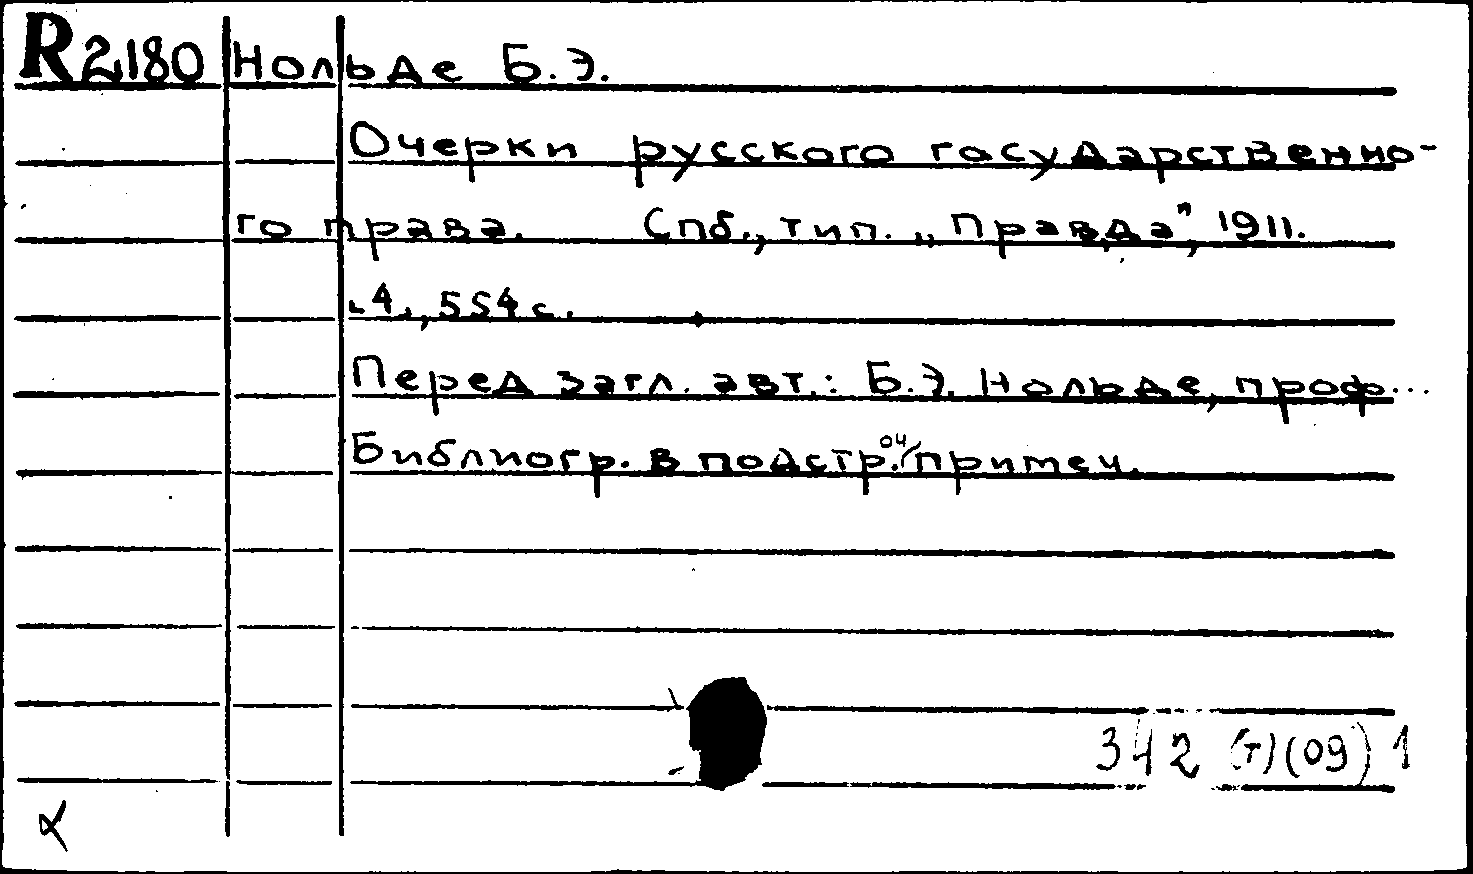 R2180 Нольде Б.Э.
Очерки русского государственно-
го права. Спб., тип. „Правда", 1911.
4, 554 с.
Перед загл. авт.: Б.Э. Нольде, проф...
Библиогр. в подстроч. примеч.
342 (09) 1